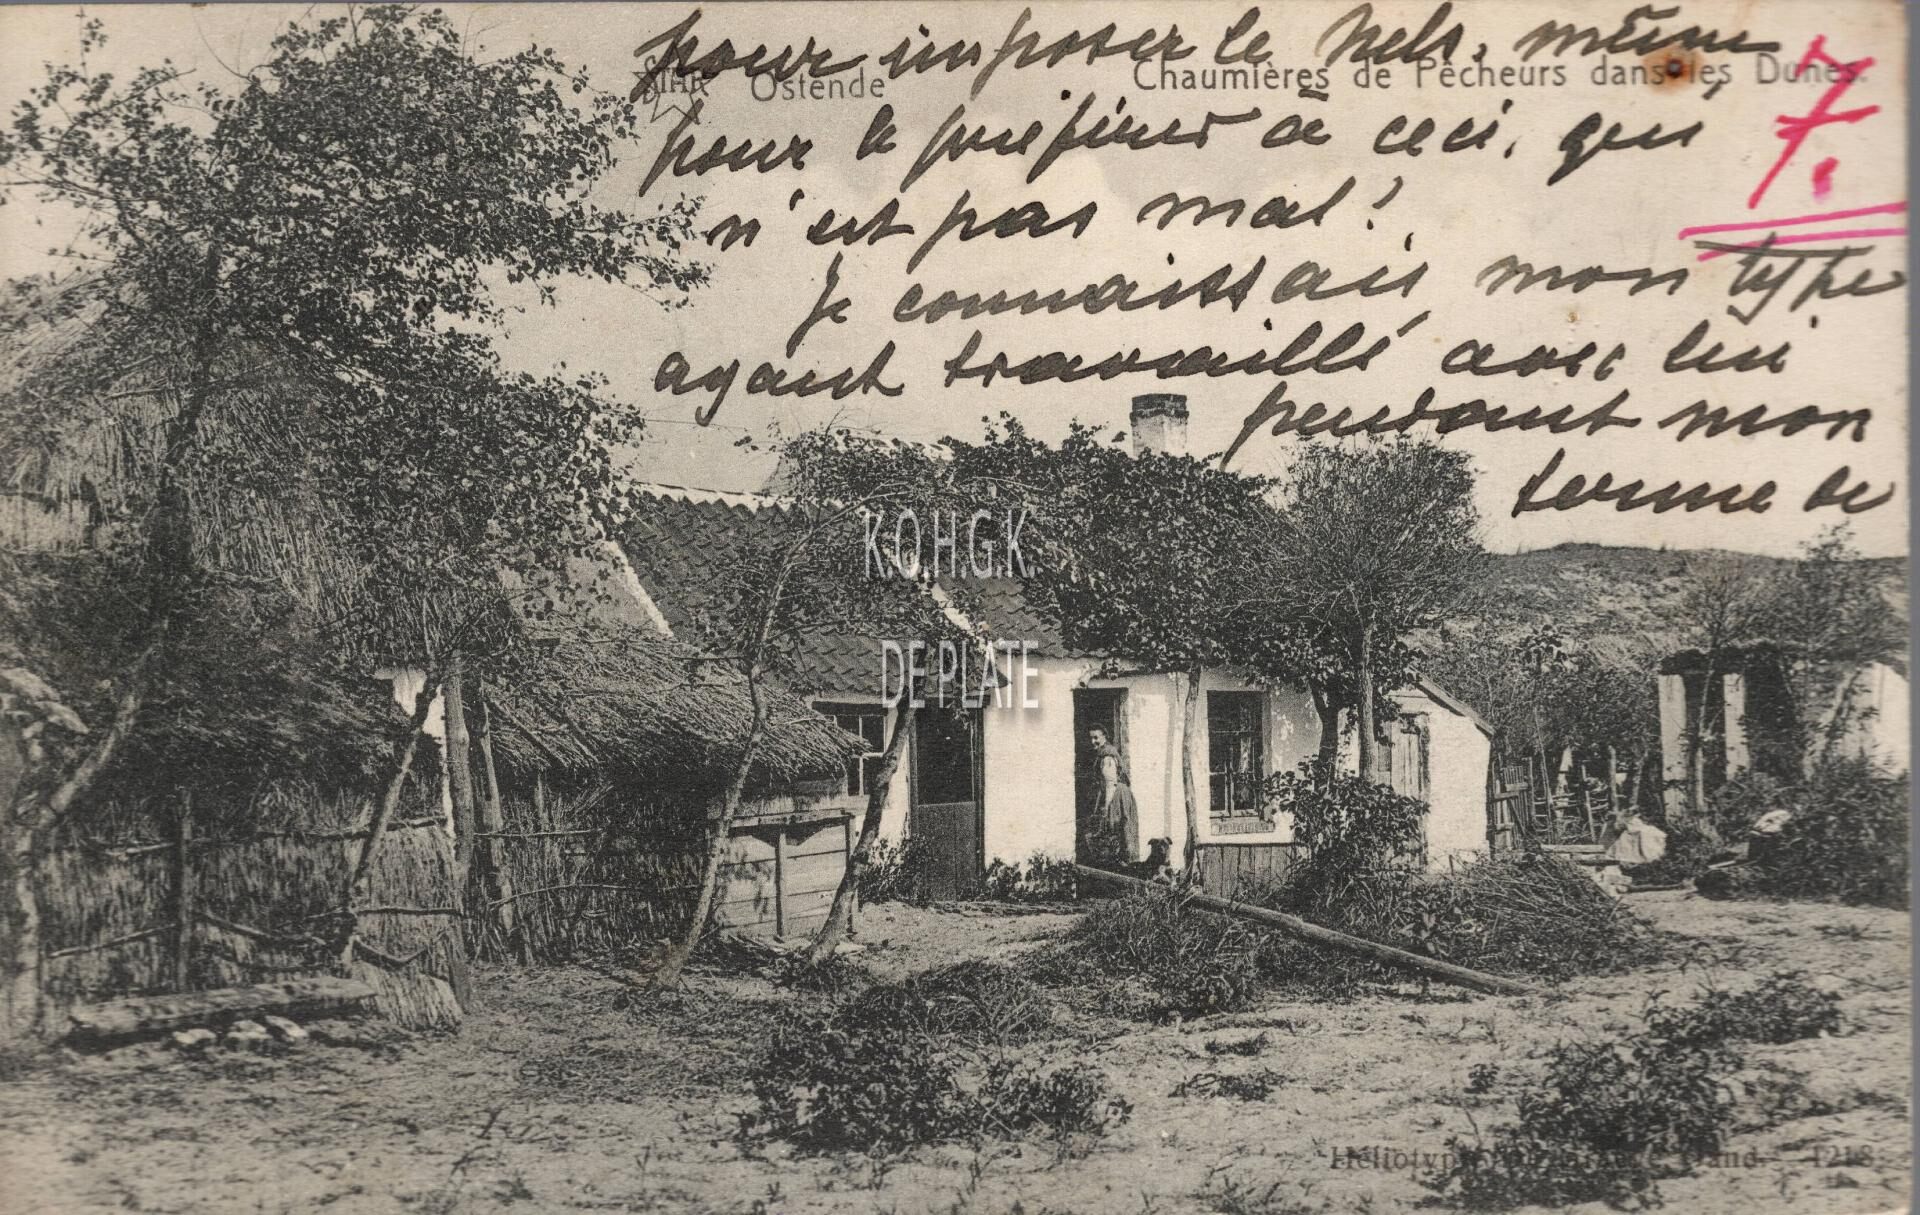 pour imposer le Nels, même
STAR Ostende Chaumières de Pêcheurs dans les Dunes.
7.
pour le préférer à ceci, qui
n'est pas mal!
Je connaissais mon type
ayant travaillé avec lui
pendant mon
terme de
K.O.H.G.K.
DE PLATE
Héliotypie Gand. 1218.